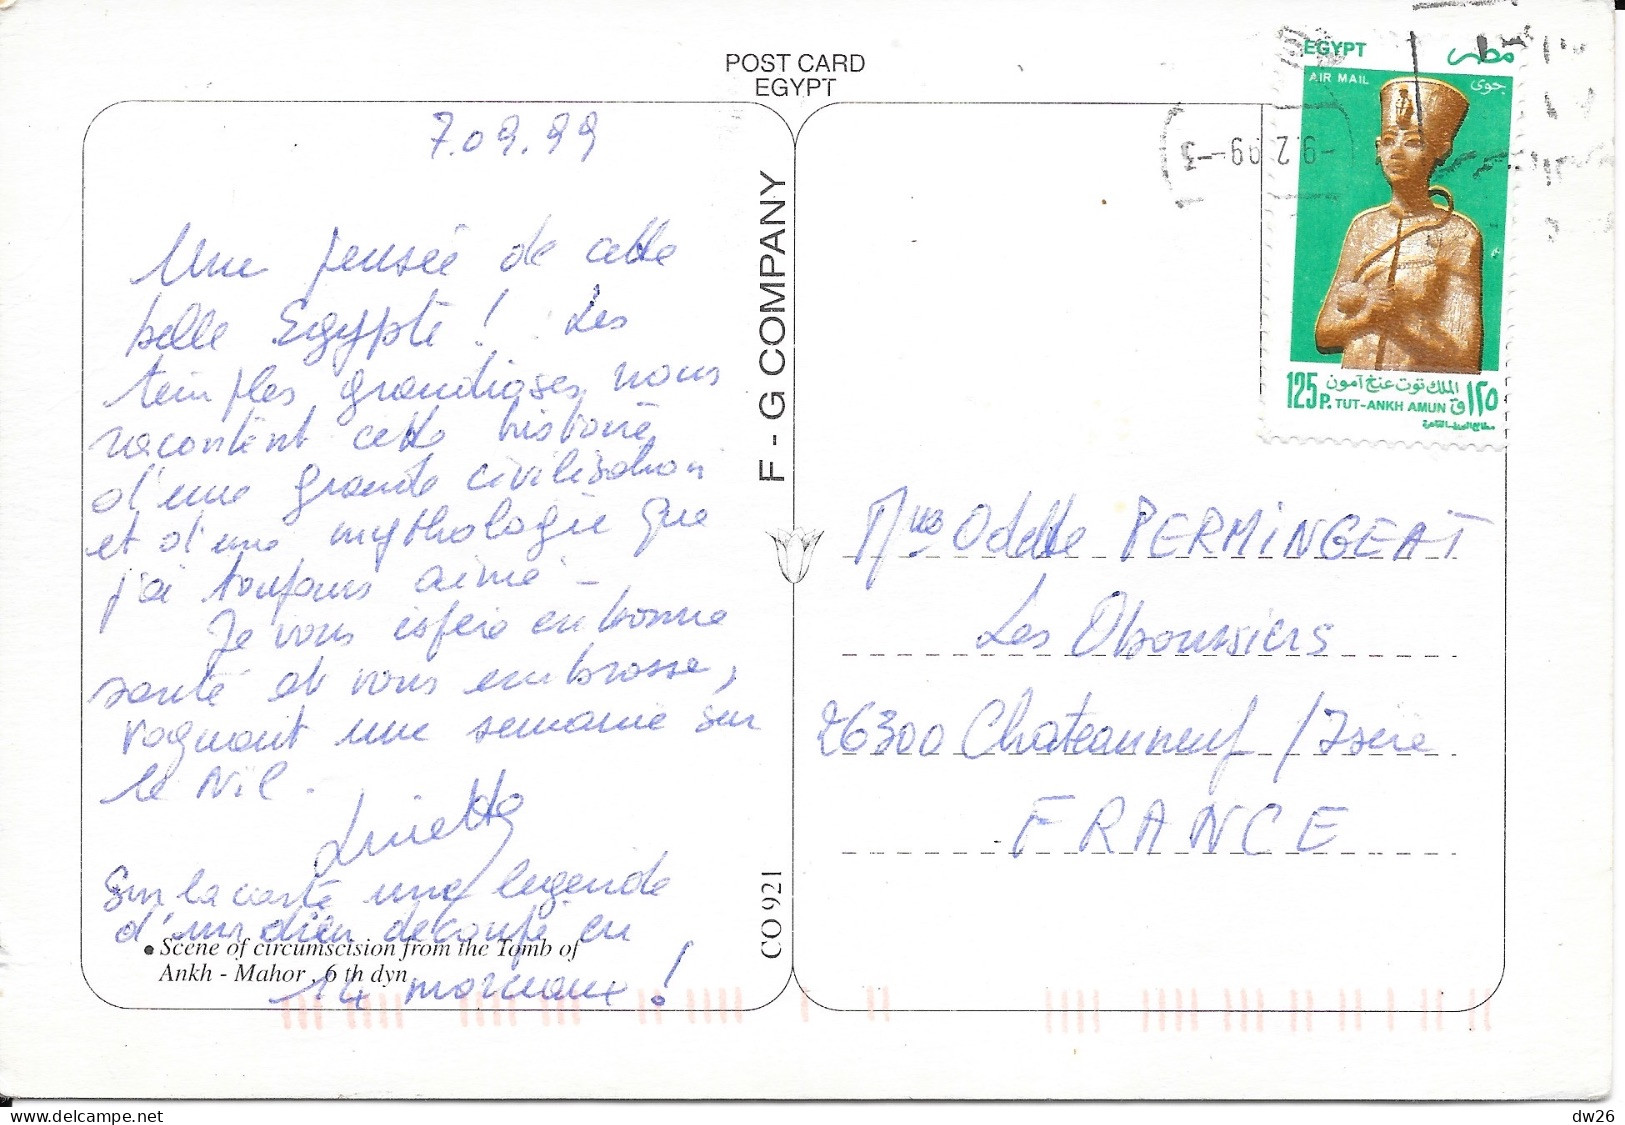 POST CARD
EGYPT
7.09.99
Une pensée de cette
belle Egypte ! Les
temples grandioses nous
racontent cette histoire
d'une grande civilisation
et d'une mythologie que
j'ai toujours aimé -
Je vous espère en bonne
santé et vous embrasse,
voguant une semaine sur
le Nil.
Sur la carte une legende
d'un dieu decoupé en
14 morceaux !
• Scene of circumscision from the Tomb of
Ankh - Mahor , 6 th dyn
F - G COMPANY
CO 921
EGYPT مصر
AIR MAIL جوى
الملك توت عنخ آمون
125 P. TUT-ANKH AMUN ١٢٥ ق
9.2.99-3
Odette PERMINGEAT
Les
26300 Chateauneuf / Isère
FRANCE
dw26